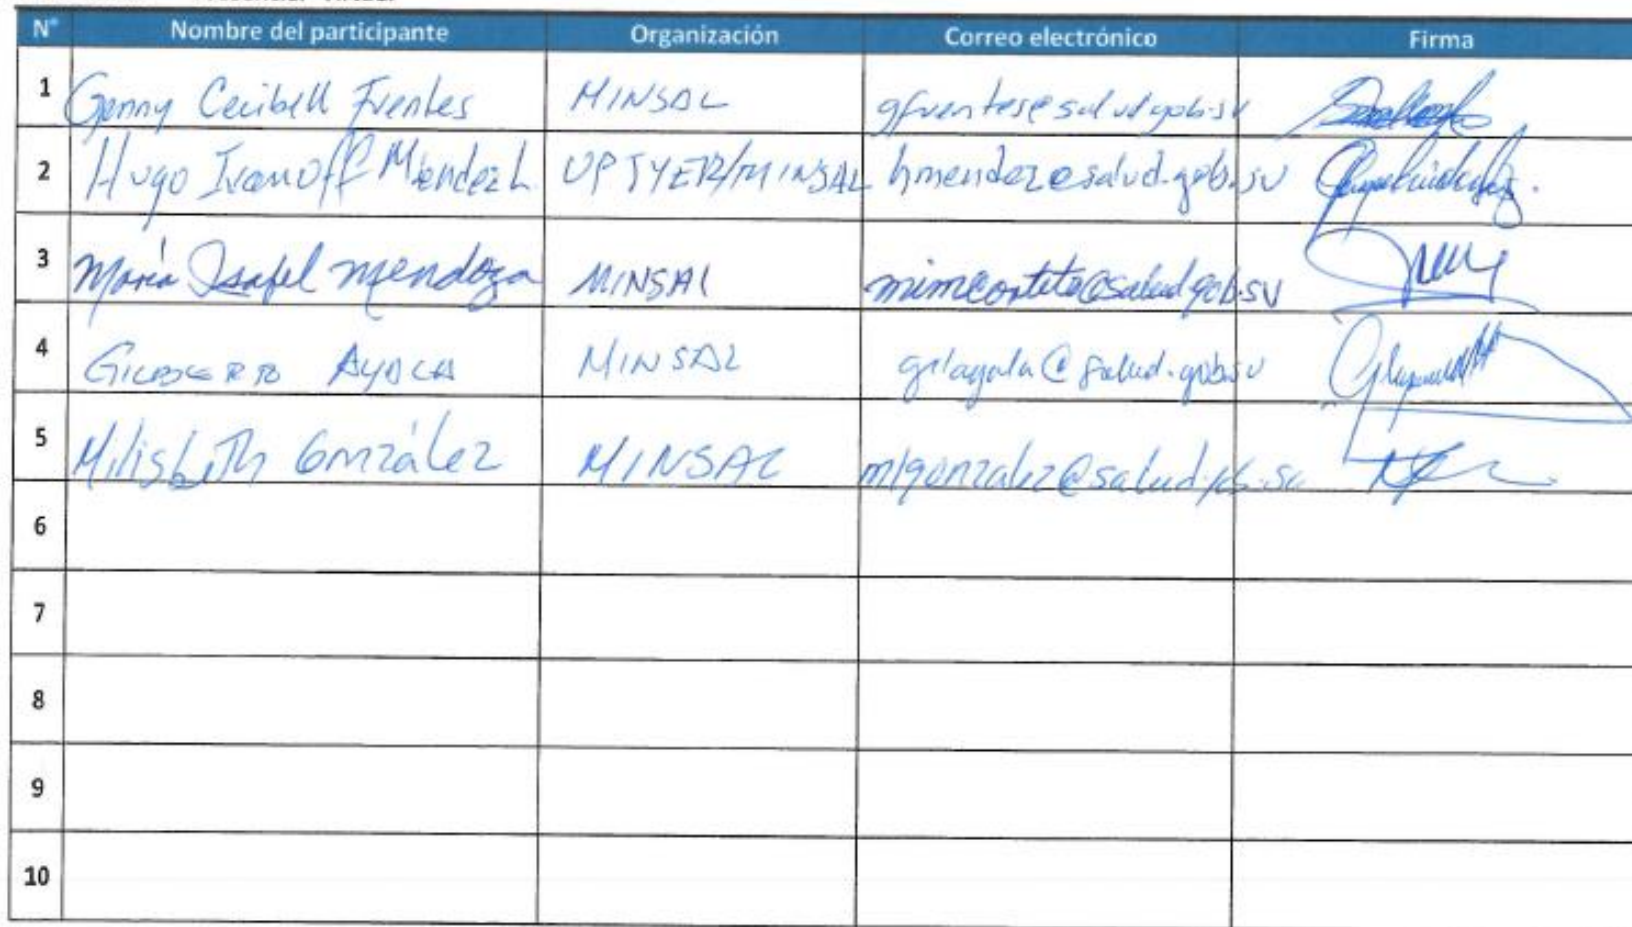 N° Nombre del participante Organización Correo electrónico Firma
1 Genny Cecibell Fuentes MINSAL gfuentes@salud.gob.sv
2 Hugo Ivanoff Méndez L. MINSAL hmendez@salud.gob.sv
3 María Isabel Mendoza MINSAL
4 Gilberto Ayala MINSAL
5 Milisbeth González MINSAL mlgonzalez@salud.gob.sv
6
7
8
9
10